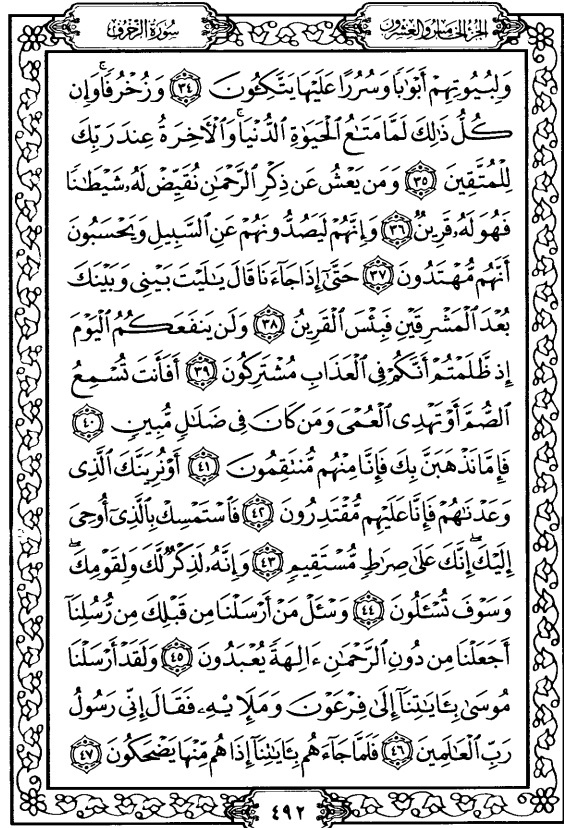 سورة الزخرف
الجزء الخامس والعشرون
وَلِبُيُوتِهِمْ أَبْوَٰبًا وَسُرُرًا عَلَيْهَا يَتَّكِـُٔونَ ٣٤ وَزُخْرُفًا ۚ وَإِن
كُلُّ ذَٰلِكَ لَمَّا مَتَٰعُ الْحَيَوٰةِ الدُّنْيَا ۚ وَالْءَاخِرَةُ عِندَ رَبِّكَ
لِلْمُتَّقِينَ ٣٥ وَمَن يَعْشُ عَن ذِكْرِ الرَّحْمَٰنِ نُقَيِّضْ لَهُۥ شَيْطَٰنًا
فَهُوَ لَهُۥ قَرِينٌ ٣٦ وَإِنَّهُمْ لَيَصُدُّونَهُمْ عَنِ السَّبِيلِ وَيَحْسَبُونَ
أَنَّهُم مُّهْتَدُونَ ٣٧ حَتَّىٰٓ إِذَا جَآءَنَا قَالَ يَٰلَيْتَ بَيْنِى وَبَيْنَكَ
بُعْدَ الْمَشْرِقَيْنِ فَبِئْسَ الْقَرِينُ ٣٨ وَلَن يَنفَعَكُمُ الْيَوْمَ
إِذ ظَّلَمْتُمْ أَنَّكُمْ فِى الْعَذَابِ مُشْتَرِكُونَ ٣٩ أَفَأَنتَ تُسْمِعُ
الصُّمَّ أَوْ تَهْدِى الْعُمْىَ وَمَن كَانَ فِى ضَلَٰلٍ مُّبِينٍ ٤٠
فَإِمَّا نَذْهَبَنَّ بِكَ فَإِنَّا مِنْهُم مُّنتَقِمُونَ ٤١ أَوْ نُرِيَنَّكَ الَّذِى
وَعَدْنَٰهُمْ فَإِنَّا عَلَيْهِم مُّقْتَدِرُونَ ٤٢ فَاسْتَمْسِكْ بِالَّذِىٓ أُوحِىَ
إِلَيْكَ ۖ إِنَّكَ عَلَىٰ صِرَٰطٍ مُّسْتَقِيمٍ ٤٣ وَإِنَّهُۥ لَذِكْرٌ لَّكَ وَلِقَوْمِكَ ۖ
وَسَوْفَ تُسْـَٔلُونَ ٤٤ وَسْـَٔلْ مَنْ أَرْسَلْنَا مِن قَبْلِكَ مِن رُّسُلِنَآ
أَجَعَلْنَا مِن دُونِ الرَّحْمَٰنِ ءَالِهَةً يُعْبَدُونَ ٤٥ وَلَقَدْ أَرْسَلْنَا
مُوسَىٰ بِـَٔايَٰتِنَآ إِلَىٰ فِرْعَوْنَ وَمَلَإِي۟هِۦ فَقَالَ إِنِّى رَسُولُ
رَبِّ الْعَٰلَمِينَ ٤٦ فَلَمَّا جَآءَهُم بِـَٔايَٰتِنَآ إِذَا هُم مِّنْهَا يَضْحَكُونَ ٤٧
٤٩٢